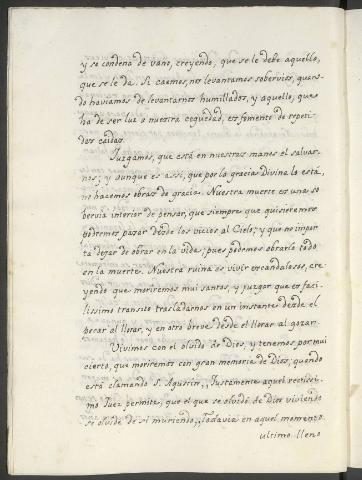 y se condena de vano, creyendo, que se le debe aquello,
que se le da. Si caemos, nos levantamos sobervios, quan-
do haviamos de levantarnos humillados, y aquello, que
ha de ser luz a nuestra ceguedad, es fomento de repeti-
das caidas.
Juzgamos, que está en nuestras manos el salvar-
nos; y aunque es assi, que por la gracia Divina lo está,
no hacemos obras de gracia. Nuestra muerte es una so-
bervia interior de pensar, que siempre que quisieremos
podremos pasar desde los vicios al Cielo; y que no impor-
ta dejar de obrar en la vida; pues podemos obrarlo todo
en la muerte. Nuestra ruina es vivir escandalosos, cre-
yendo que moriremos mui santos, y juzgar que es faci-
lissimo transito trasladarnos en un instante desde el
pecar al llorar, y en otro breve desde el llorar al gozar.
Vivimos con el olvido de Dios, y tenemos por mui
cierto, que moriremos con gran memoria de Dios; quando
está clamando S. Agustin,, Justamente aquel rectissi-
mo Juez permite, que el que se olvidó de Dios viviendo
se olvide de si muriendo,, Todavia en aquel momento
ultimo lleno